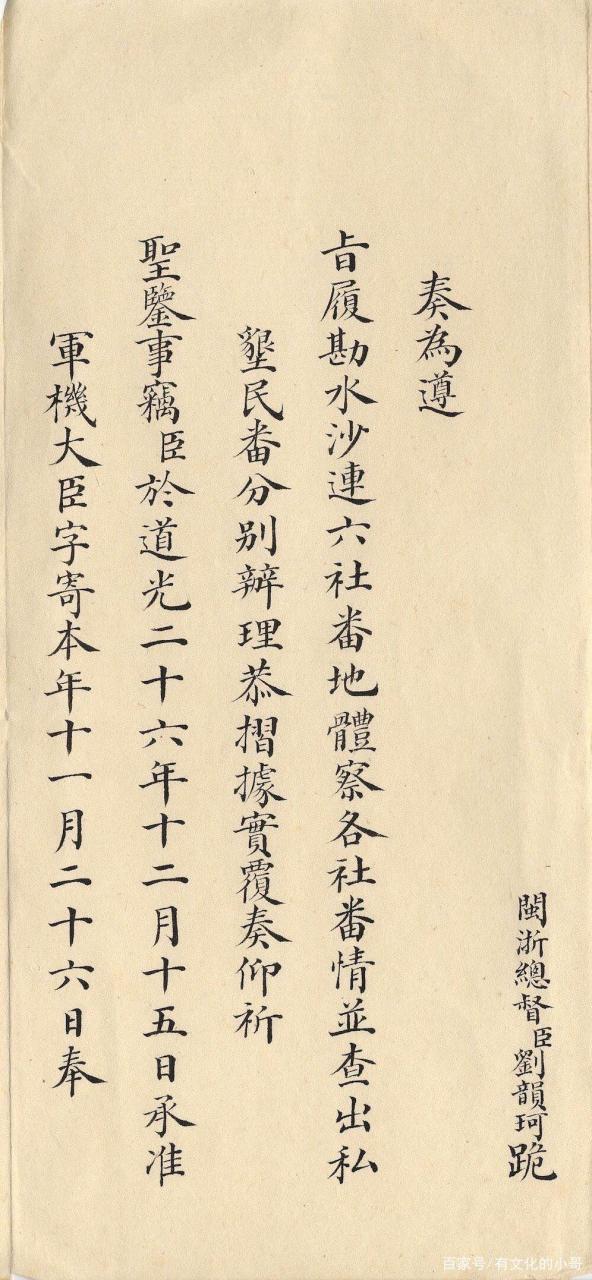 閩浙總督臣劉韻珂跪
奏為遵
旨履勘水沙連六社番地體察各社番情並查出私
墾民番分別辦理恭摺據實覆奏仰祈
聖鑒事竊臣於道光二十六年十二月十五日承准
軍機大臣字寄本年十一月二十六日奉
百家号/有文化的小哥